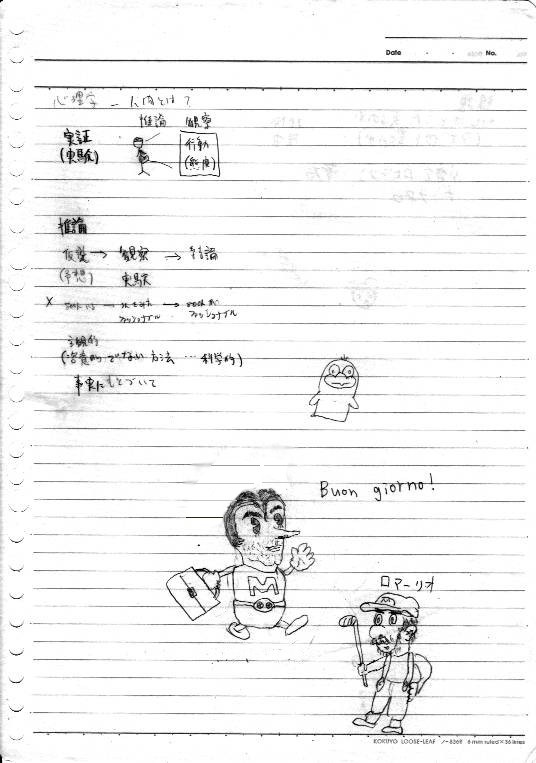 Date ・ ・ No.
心理学 ― 人間とは?
推論 観察
実証
(実験)
行動
(態度)
推論
仮説 → 観察 → 結論
(予想) 実験
×
ファッショナブル ファッショナブル
主観的
(客観的でない方法…科学的)
事実にもとづいて
Buon giorno!
M
ロアーリオ
M
KOKUYO LOOSE-LEAF ノ-836B 6 mm ruled×36 lines